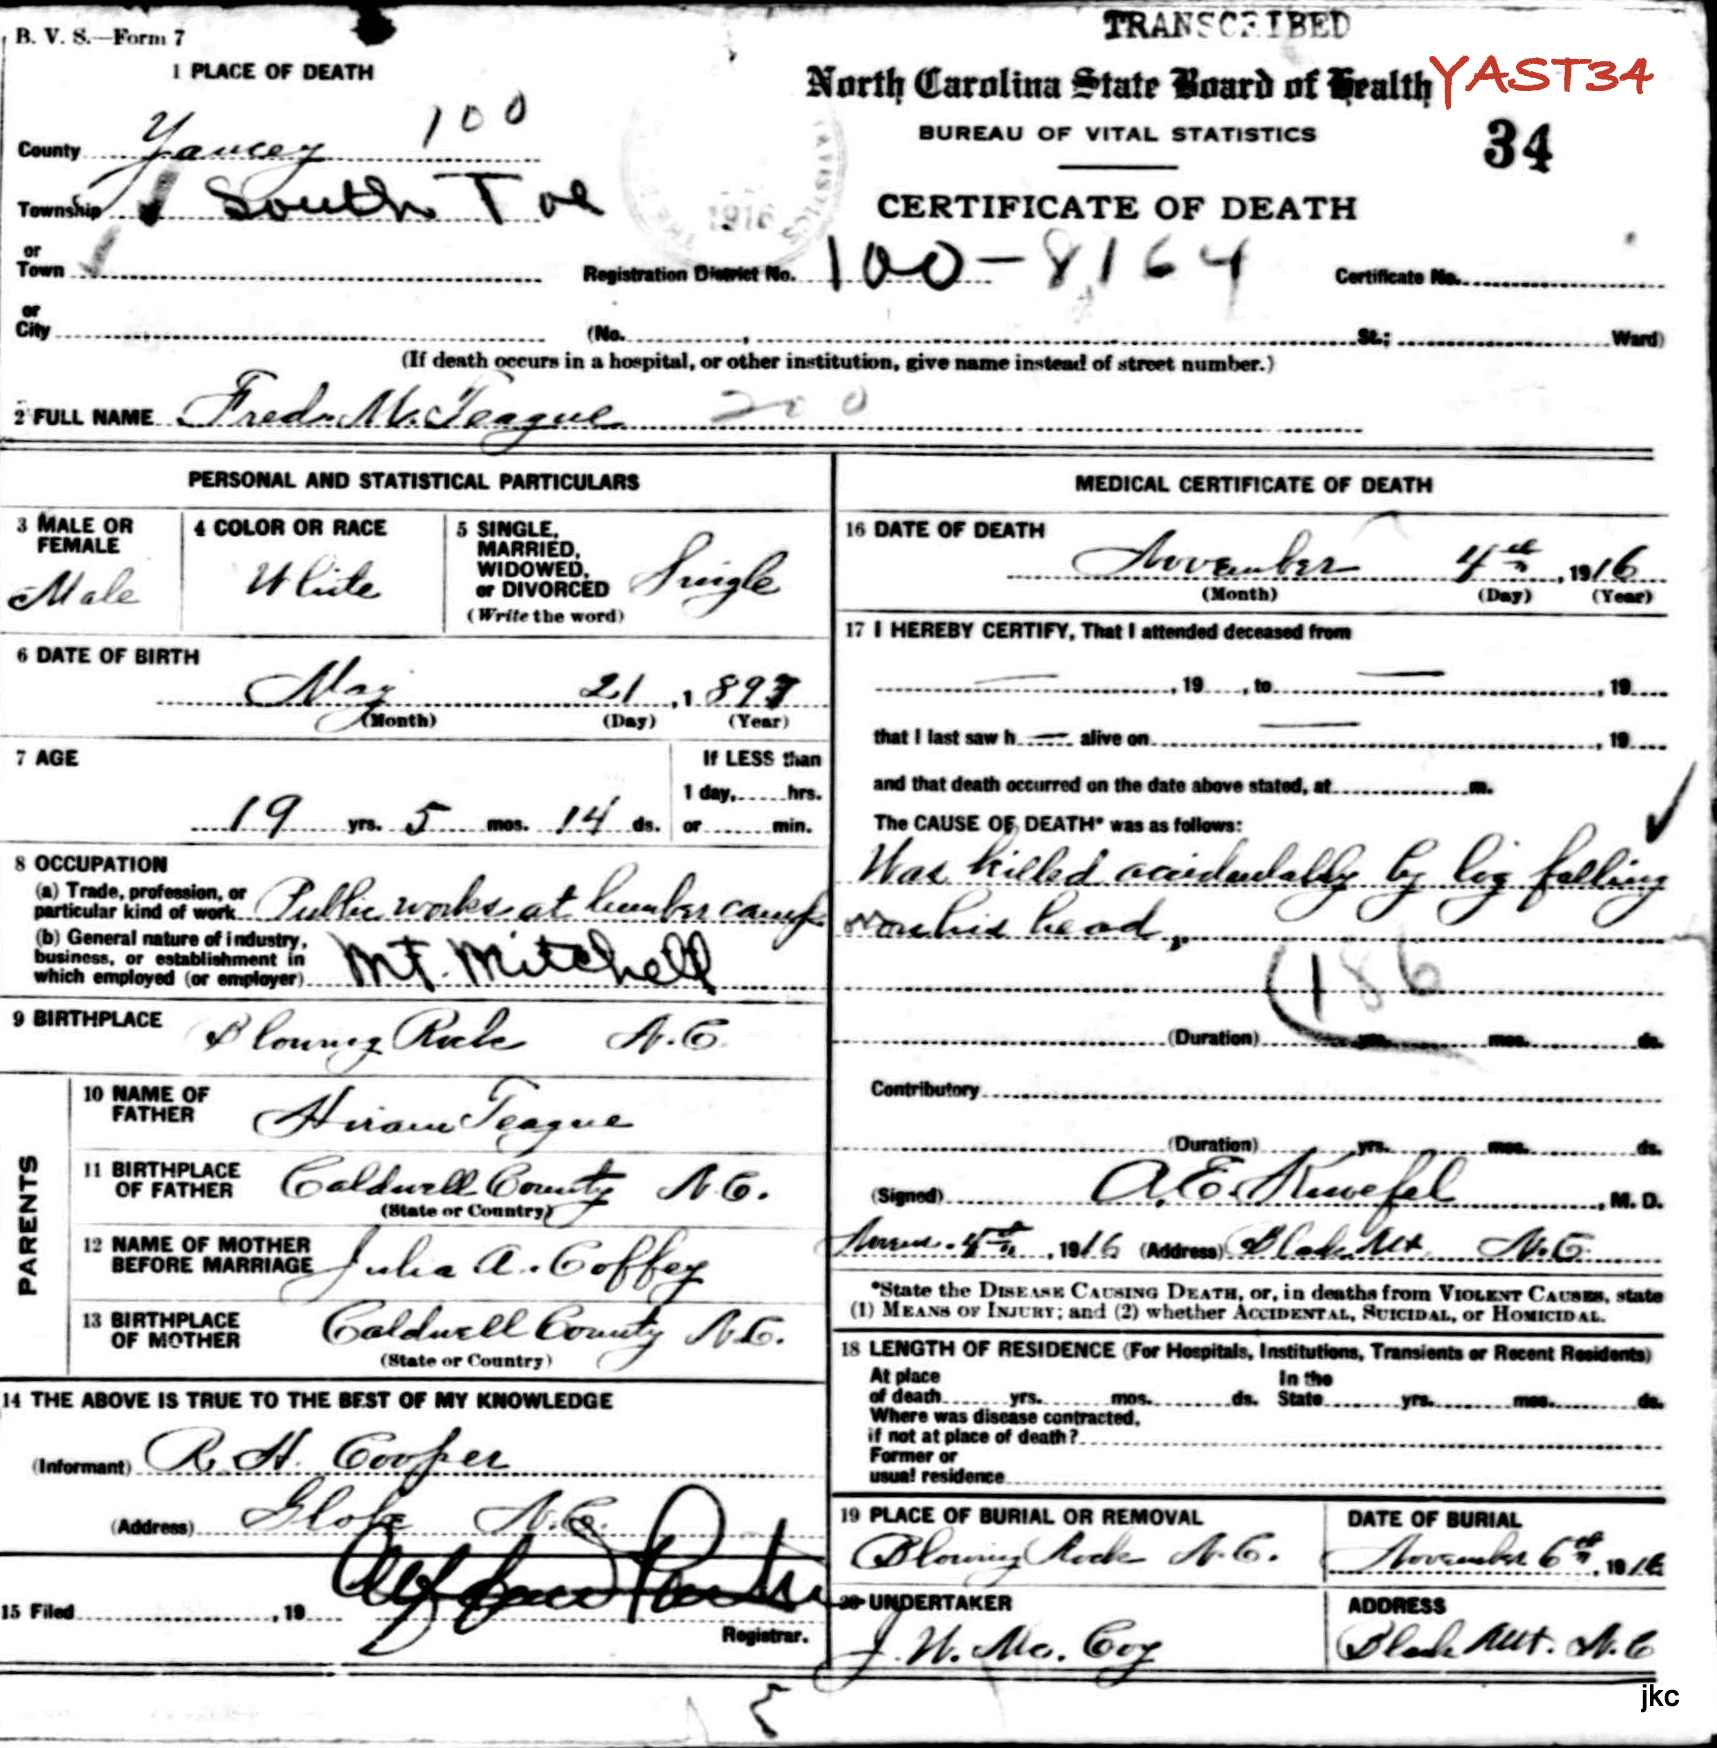 TRANSCRIBED
B. V. S.—Form 7
North Carolina State Board of Health YAST34
BUREAU OF VITAL STATISTICS
34
CERTIFICATE OF DEATH
1 PLACE OF DEATH
County Yancey 100
Township South Toe
1916
or
Town
Registration District No. 100-8164 Certificate No.
or
City (No. , St.; Ward)
(If death occurs in a hospital, or other institution, give name instead of street number.)
2 FULL NAME Fred. M. Teague 200
PERSONAL AND STATISTICAL PARTICULARS
3 MALE OR FEMALE
Male
4 COLOR OR RACE
White
5 SINGLE,
MARRIED,
WIDOWED,
or DIVORCED
(Write the word)
Single
6 DATE OF BIRTH
May 21, 1897
(Month) (Day) (Year)
7 AGE
19 yrs. 5 mos. 14 ds.
If LESS than
1 day, hrs.
or min.
8 OCCUPATION
(a) Trade, profession, or
particular kind of work Public works at lumber camp
(b) General nature of industry,
business, or establishment in
which employed (or employer) Mt. Mitchell
9 BIRTHPLACE Blowing Rock N.C.
PARENTS
10 NAME OF
FATHER Hiram Teague
11 BIRTHPLACE
OF FATHER Caldwell County N.C.
(State or Country)
12 NAME OF MOTHER
BEFORE MARRIAGE Julia A. Coffey
13 BIRTHPLACE
OF MOTHER Caldwell County N.C.
(State or Country)
14 THE ABOVE IS TRUE TO THE BEST OF MY KNOWLEDGE
(Informant) R. H. Cooper
(Address) Globe N.C.
15 Filed , 19
Registrar.
MEDICAL CERTIFICATE OF DEATH
16 DATE OF DEATH
November 4th, 1916
(Month) (Day) (Year)
17 I HEREBY CERTIFY, That I attended deceased from
— , 19 , to — , 19
that I last saw h — alive on — , 19
and that death occurred on the date above stated, at m.
The CAUSE OF DEATH* was as follows:
Was killed accidentally by log falling
on his head,
186
(Duration) yrs. mos. ds.
Contributory
(Duration) yrs. mos. ds.
(Signed) A. E. , M. D.
, 1916 (Address) Black Mt. N.C.
*State the DISEASE CAUSING DEATH, or, in deaths from VIOLENT CAUSES, state
(1) MEANS OF INJURY; and (2) whether ACCIDENTAL, SUICIDAL, or HOMICIDAL.
18 LENGTH OF RESIDENCE (For Hospitals, Institutions, Transients or Recent Residents)
At place
of death yrs. mos. ds.
In the
State yrs. mos. ds.
Where was disease contracted,
if not at place of death?
Former or
usual residence
19 PLACE OF BURIAL OR REMOVAL
Blowing Rock N.C.
DATE OF BURIAL
November 6th, 1916
20 UNDERTAKER
J. W. Mc. Coy
ADDRESS
Black Mt. N.C
jkc